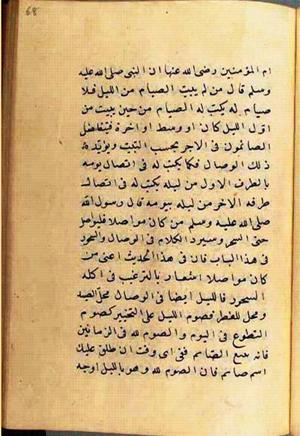 68
ام المؤمنين رضى الله عنها ان النبى صلى الله عليه
وسلم قال من لم يبيت الصيام من الليل فلا
صيام له يكتب له الصيام من حين يبيت من
اول الليل كان او وسط او اخره فيتفاضل
الصائمون فى الاجر بحسب التبييت ويؤيد
ذلك الوصال فكما يكتب له فى اتصال يومه
بالطرف الاول من ليله يكتب له فى اتصال
طرفه الاخر من ليله بيومه قال رسول الله
صلى الله عليه وسلم من كان مواصلا فليواصل
حتى السحر وسيرد الكلام فى الوصال والسحور
فى هذا الباب فان فى هذا الحديث اعنى من
كان مواصلا اشعار بالترغيب فى اكله
السحور فالليل ايضا فى الوصال محل للصيام
ومحل للفطر فصوم الليل على التخيير كصوم
التطوع فى اليوم والصوم لله فى الزمانين
فانه يتبع الصائم ففى اى وقت ان طلق عليك
اسم صائم فان الصوم لله وهو بالليل اوجه